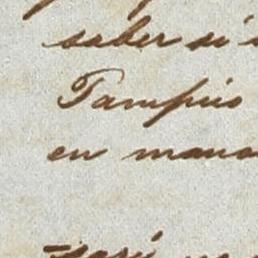 saber si
Tampico
en mano